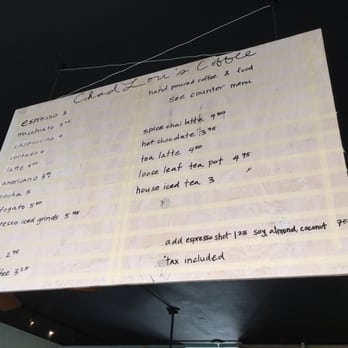 Chad Lou's Coffee
hand poured coffee & food
see counter menu
espresso 3
macchiato
cappuccino 4
cortado
latte
americano 3
mocha 5
fogato 5
resso iced grinds 5
2.95
ee 3.25
spice chai latte 4
hot chocolate 3.95
tea latte 4
loose leaf tea pot 4.95
house iced tea 3
add espresso shot 1.25 soy, almond, coconut
*tax included